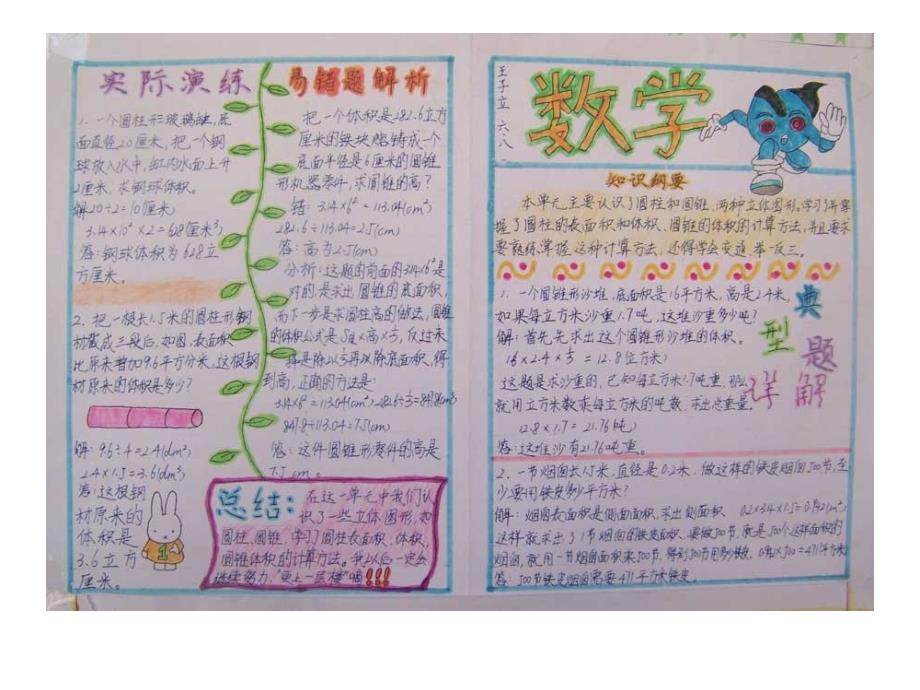 实际演练
1.一个圆柱形玻璃缸,底
面直径20厘米,把一个钢
球放入水中,缸内水面上升
2厘米,求钢球体积。
解20÷2=10(厘米)
3.14×10²×2=628(厘米)
答:钢球体积为628立
方厘米。
2.把一根长1.5米的圆柱形钢
材截成三段后,如图,表面积
比原来增加9.6平方分米,这根钢
材原来的体积是多少?
解:9.6÷4=2.4(dm²)
2.4×1.5=3.6(dm³)
答:这根钢
材原来的
体积是
3.6立方
厘米。
1
易错题解析
把一个体积是282.6立方
厘米的铁块熔铸成一个
底面半径是6厘米的圆锥
形机器零件,求圆锥的高?
错:3.14×6²=113.04(cm²)
282.6÷113.04=2.5(cm)
答:高为2.5(cm)
分析:这题的前面的3.14×6²是
对的,是求出圆锥的底面积,
而下一步是求圆柱高的做法,圆锥
的体积公式是S底×高×⅓,反过来
择是除以⅓再除底面积,得
到高,正确的方法是:
3.14×6²=113.04(cm²)282.6÷⅓=847.8(cm³)
847.8÷113.04=7.5(cm)
答:这件圆锥形零件的高是
7.5cm。
总结:
在这一单元中我们认
识了一些立体图形,如
圆柱,圆锥,学习了圆柱表面积、体积,
圆锥体积的计算方法。我以后一定会
继续努力,“更上一层楼”嘀!!!
王子立 六.八
数学
知识纲要
本单元主要认识了圆柱和圆锥,两种立体图形。学习了并掌
握了圆柱的表面积和体积、圆锥的体积的计算方法,并且要求
要熟练掌握这种计算方法,还得学会变通,举一反三。
典型题详解
1.一个圆锥形沙堆,底面积是16平方米,高是2.4米,
如果每立方米沙重1.7吨,这堆沙重多少吨?
解:首先先求出这个圆锥形沙堆的体积。
16×2.4×⅓=12.8(立方米)
这题是求沙重的,已知每立方米1.7吨重,那么
就用立方米数乘每立方米的吨数,求出总重量。
12.8×1.7=21.76(吨)
答:这堆沙有21.76吨重。
2.一节烟囱长1.5米,直径是0.2米,做这样的铁皮烟囱500节,至
少要用铁皮多少平方米?
解:烟囱表面积是侧面面积,求出侧面积 0.2×3.14×1.5=0.942(m²)
这样就求出了1节烟囱的铁皮面积,要做500节,就是500个这样面积的
烟囱,就用一节烟囱面积乘500节,得到500节用多少铁皮,0.942×500=471(平方米)
答:500节铁皮烟囱需要471平方米铁皮。